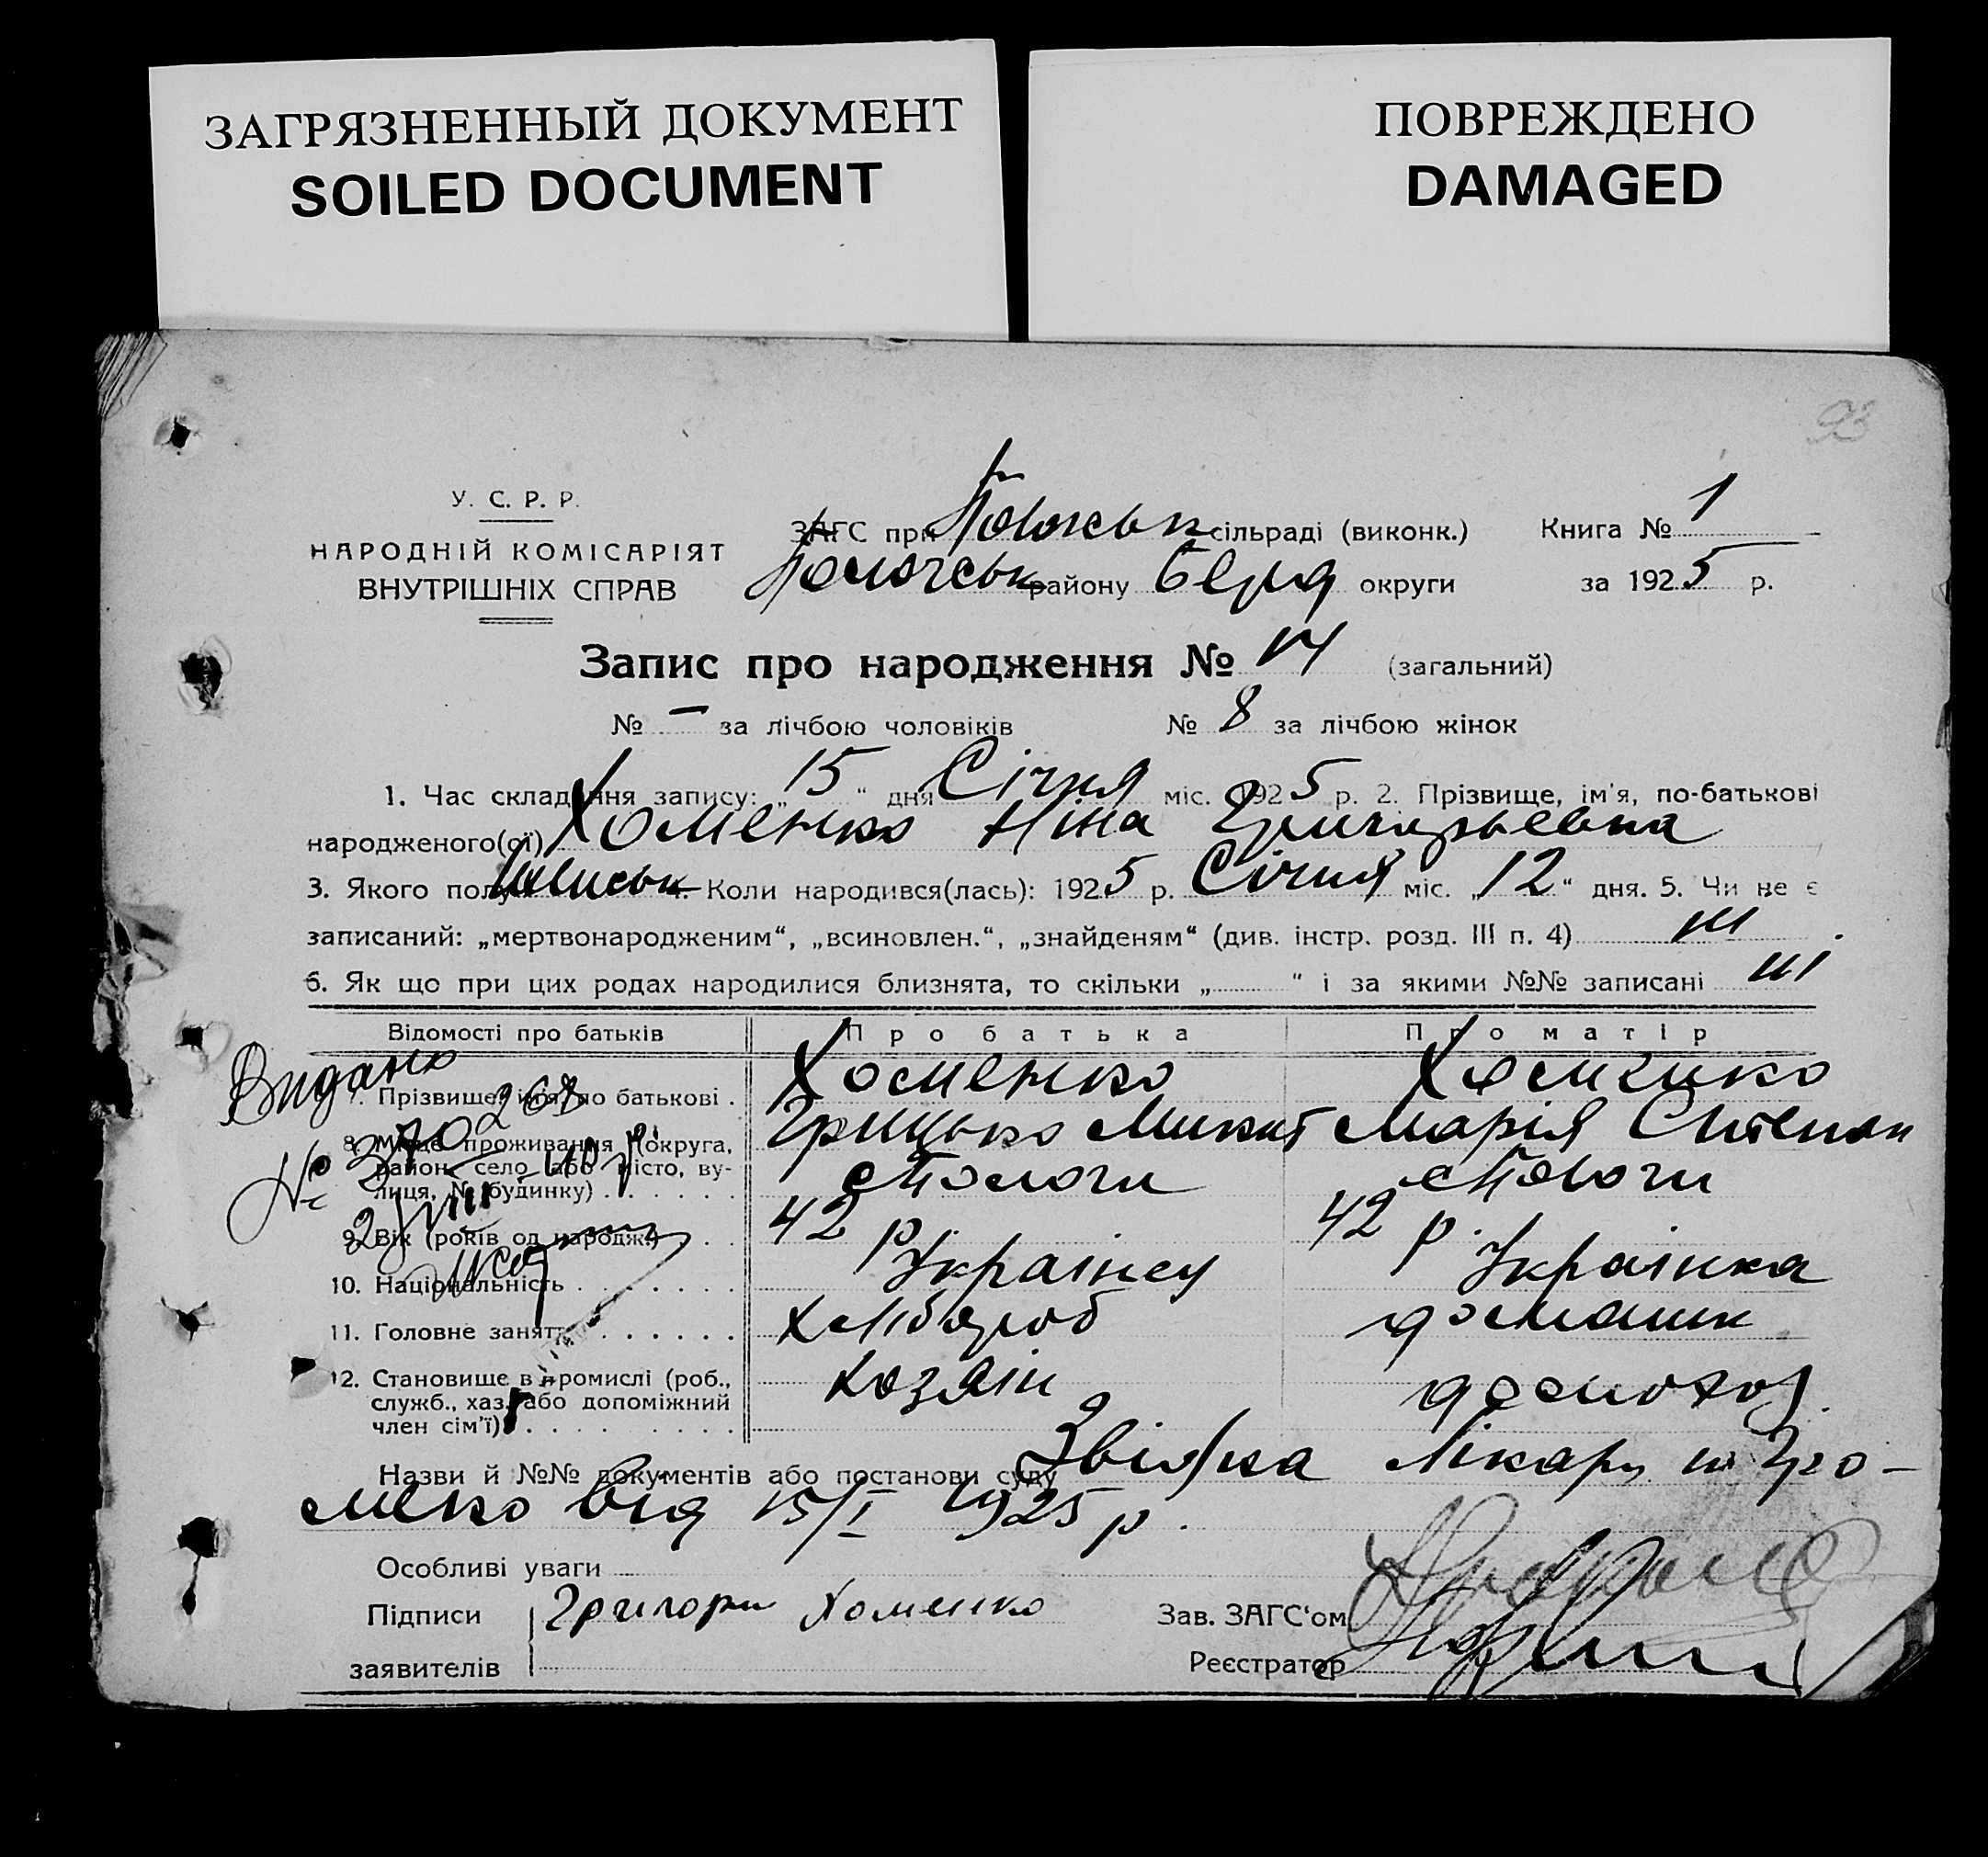 ЗАГРЯЗНЕННЫЙ ДОКУМЕНТ
SOILED DOCUMENT
ПОВРЕЖДЕНО
DAMAGED
93
У. С. Р. Р.
НАРОДНІЙ КОМІСАРІЯТ
ВНУТРІШНІХ СПРАВ
ЗАГС при Пологськ сільраді (виконк.) Книга № 1
Пологськ району Берд округи за 1925 р.
Запис про народження № 14 (загальний)
№ – за лічбою чоловіків № 8 за лічбою жінок
1. Час складання запису: „15“ дня Січня міс. 1925 р. 2. Прізвище, ім'я, по-батькові
народженого(ої) Хоменко Ніна Григорьевна
3. Якого полу 4. Коли народився(лась): 1925 р. Січня міс. „12“ дня. 5. Чи не є
записаний: „мертвонародженим“, „всиновлен.“, „знайденям“ (див. інстр. розд. III п. 4) ні
6. Як що при цих родах народилися близнята, то скільки „ “ і за якими №№ записані ні
Відомості про батьків Про батька Про матір
7. Прізвище, ім'я, по батькові . Хоменко Грицько Микит Хоменко Марія Степан
8. Місце проживання (округа,
район, село або місто, ву-
лиця, № будинку) . . . . . . с Пологи с Пологи
9. Вік (років од народж.) . . . 42 р 42 р.
10. Національність . . . . . . . Українец Українка
11. Головне заняття . . . . . . хлібороб домашн
12. Становище в промислі (роб.,
служб., хаз. або допоміжний
член сім'ї) . . . . . . . . . хозяін домохоз
Видано
№
Назви й №№ документів або постанови суду Звістка Лікаря
від 15/I 1925 р.
Особливі уваги
Підписи Григорий Хоменко Зав. ЗАГС'ом
заявителів Реєстратор